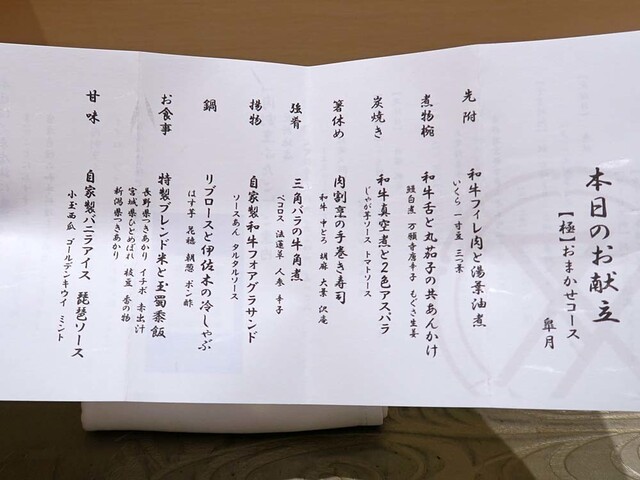 本日のお献立
【極】おまかせコース
皐月
先附
和牛フィレ肉と湯葉油煮
いくら 一寸豆 三つ葉
煮物椀
和牛舌と丸茄子の共あんかけ
鰻白煮 万願寺唐辛子 もぐさ生姜
炭焼き
和牛真空煮と2色アスパラ
じゃが芋ソース トマトソース
箸休め
肉割烹の手巻き寿司
和牛 中とろ 胡麻 大葉 沢庵
強肴
三角バラの牛角煮
ペコロス 法蓮草 人参 辛子
揚物
自家製和牛フォアグラサンド
ソースあん タルタルソース
鍋
リブロースと伊佐木の冷しゃぶ
はす芋 茗荷 朝葱 ポン酢
お食事
特製ブレンド米と玉蜀黍飯
長野県つきあかり イチボ 赤出汁
宮城県ひとめぼれ 枝豆 香の物
新潟県つきあかり
甘味
自家製バニラアイス 琵琶ソース
小玉西瓜 ゴールデンキウイ ミント